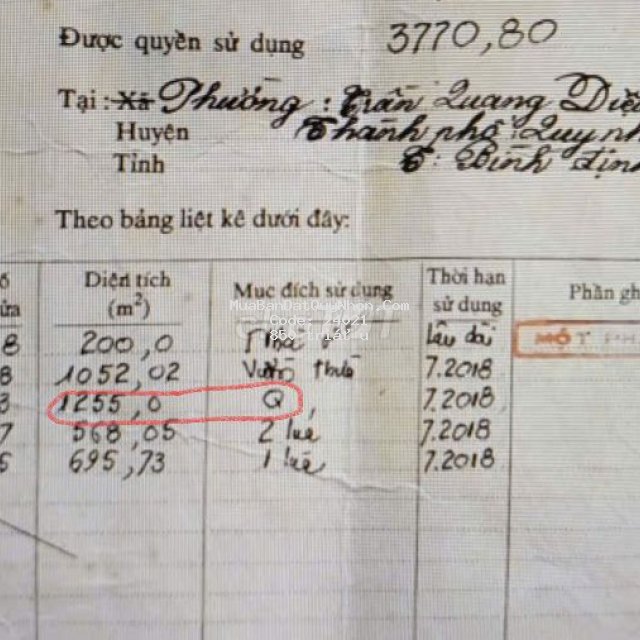 Được quyền sử dụng 3770,80
Tại: Xã Phường: Trần Quang Diệ
Huyện Thành phố: Quy nh
Tỉnh T: Bình Định
Theo bảng liệt kê dưới đây:
ố
ửa
Diện tích
(m²)
Mục đích sử dụng
Thời hạn
sử dụng
Phần gh
8 200,0 lâu dài MỘT PH
MuaBanDatQuyNhon.Com
8 1052,02 Vườn thuế 7.2018
3 1255,0 Q 7.2018
7 568,05 2 lúa 7.2018
5 695,73 1 lúa 7.2018